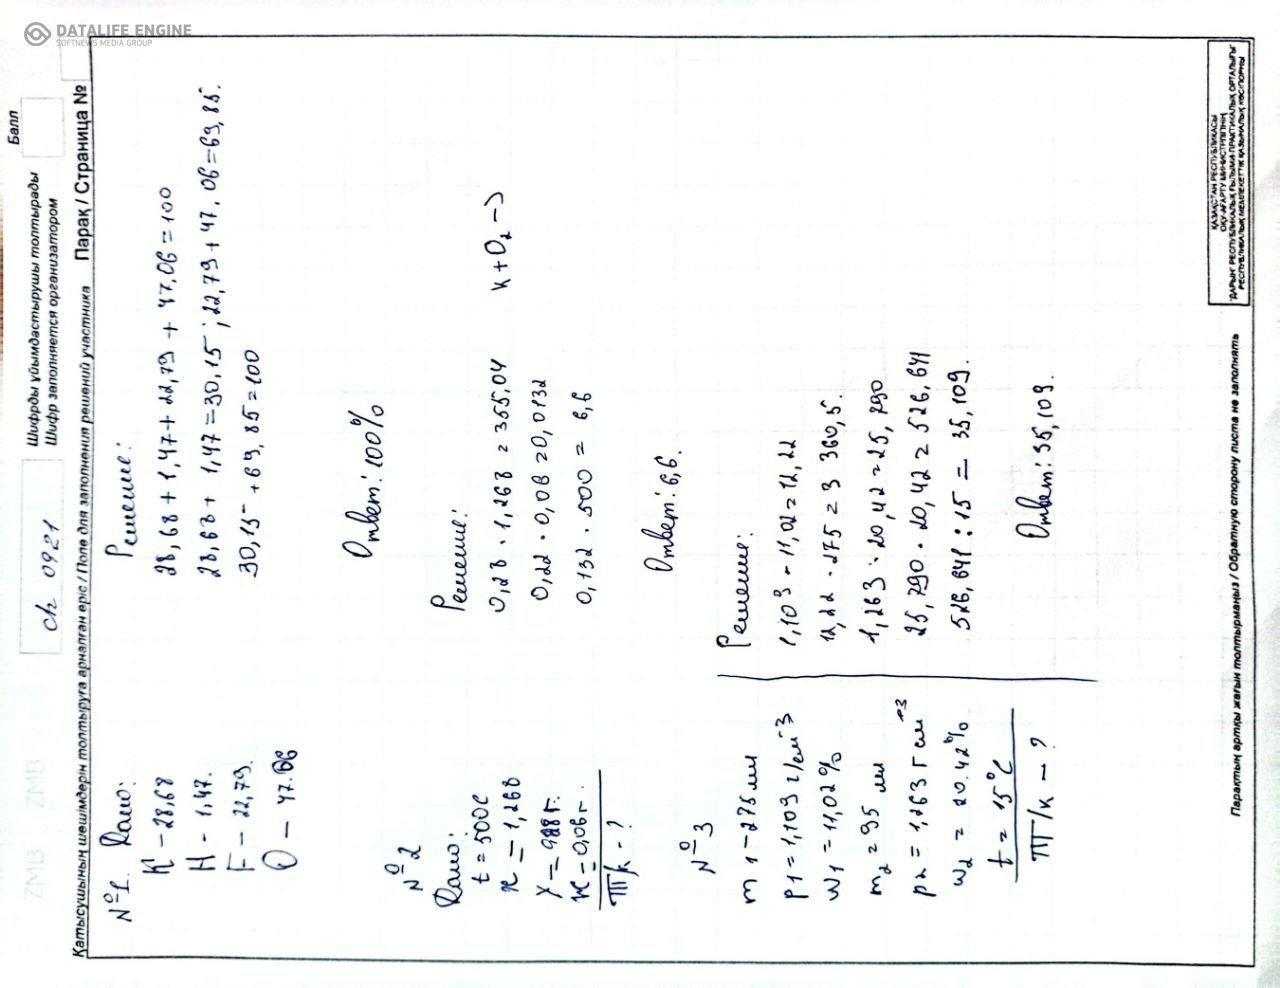 DATALIFE ENGINE
SOFTNEWS MEDIA GROUP
Балл
ch 0921
Шифрды ұйымдастырушы толтырады
Шифр заполняется организатором
Парақ / Страница №
Қатысушының шешімдерін толтыруға арналған өріс / Поле для заполнения решений участника
№1. Дано:
K - 28,68
H - 1,47.
F - 22,79.
O - 47.06
Решение:
28,68 + 1,47 + 22,79 + 47,06 = 100
28,68 + 1,47 = 30,15 ; 22,79 + 47,06 = 69,85.
30,15 + 69,85 = 100
Ответ: 100%
№2
Дано:
t = 500C
x = 1,268
= 0,06 г.
ПТ/к - ?
Решение:
0,28 · 1,268 = 355,04
0,22 · 0,08 = 0,0132
0,132 · 500 = 6,6
K + O2 ->
Ответ: 6,6.
№3
m1 - 275 мл
p1 = 1,103 г/см3
w1 = 11,02 %
m2 = 95 мл
p2 = 1,263 г см-3
w2 = 20.42 %
t = 15°C
ПТ/к - ?
Решение:
1,103 · 11,02 = 12,22
12,22 · 275 = 3 360,5.
1,263 · 20,42 = 25,790
25,790 · 20,42 = 526,641
526,641 : 15 = 35,109.
Ответ: 35,109.
Парақтың артқы жағын толтырмаңыз / Обратную сторону листа не заполнять
ҚАЗАҚСТАН РЕСПУБЛИКАСЫ
ОҚУ-АҒАРТУ МИНИСТРЛІГІНІҢ
"ДАРЫН" РЕСПУБЛИКАЛЫҚ ҒЫЛЫМИ-ПРАКТИКАЛЫҚ ОРТАЛЫҒЫ"
РЕСПУБЛИКАЛЫҚ МЕМЛЕКЕТТІК ҚАЗЫНАЛЫҚ КӘСІПОРНЫ